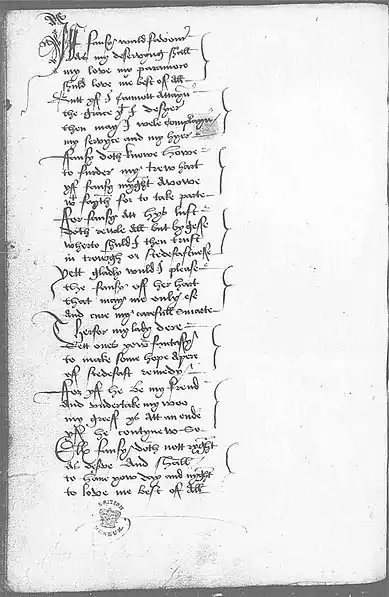 Yff fansy wuld favour
As my deservyng shall
my love my paramore
shuld love me best of all
butt yff I cannott attayn
the grace yt I desyer
then may I well complayn
my servyce and my hyer
fansy doth knowe howe
to furder my trew hart
yff fansy myght avowe
wt fayth for to take parte
for fansy att hys lust
doth rewle all but by gesse
wherto shuld I then trust
in trowgh or stedefastnesse
yett gladly wuld I please
the fansy off her hart
that may me only ese
and cure my carefull smarte
Therfor my lady dere
sett ones yowr fantasy
to make some hope apere
off stedefast remedy
for yff he be my frend
and undertake my woo
my greef ys att an ende
yff he contynew so
Elles fansy doth nott ryght
as desire and shall
to have yow day and nyght
to love me best off all
BRITISH MUSEUM